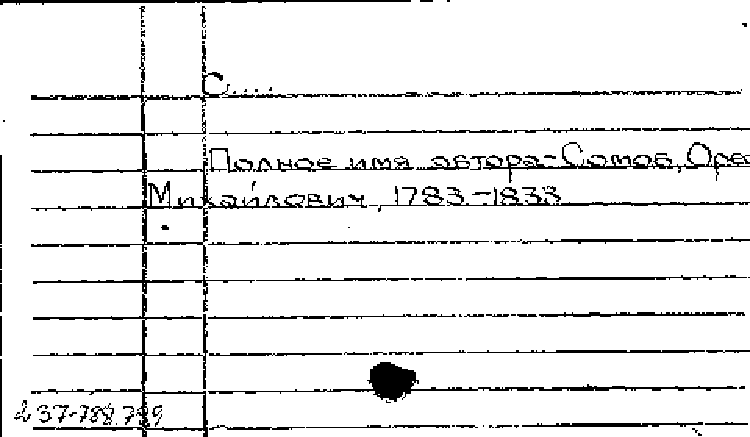 С....
Полное имя автора-Сомов, Орес
Михайлович, 1783-1833
437-788.799